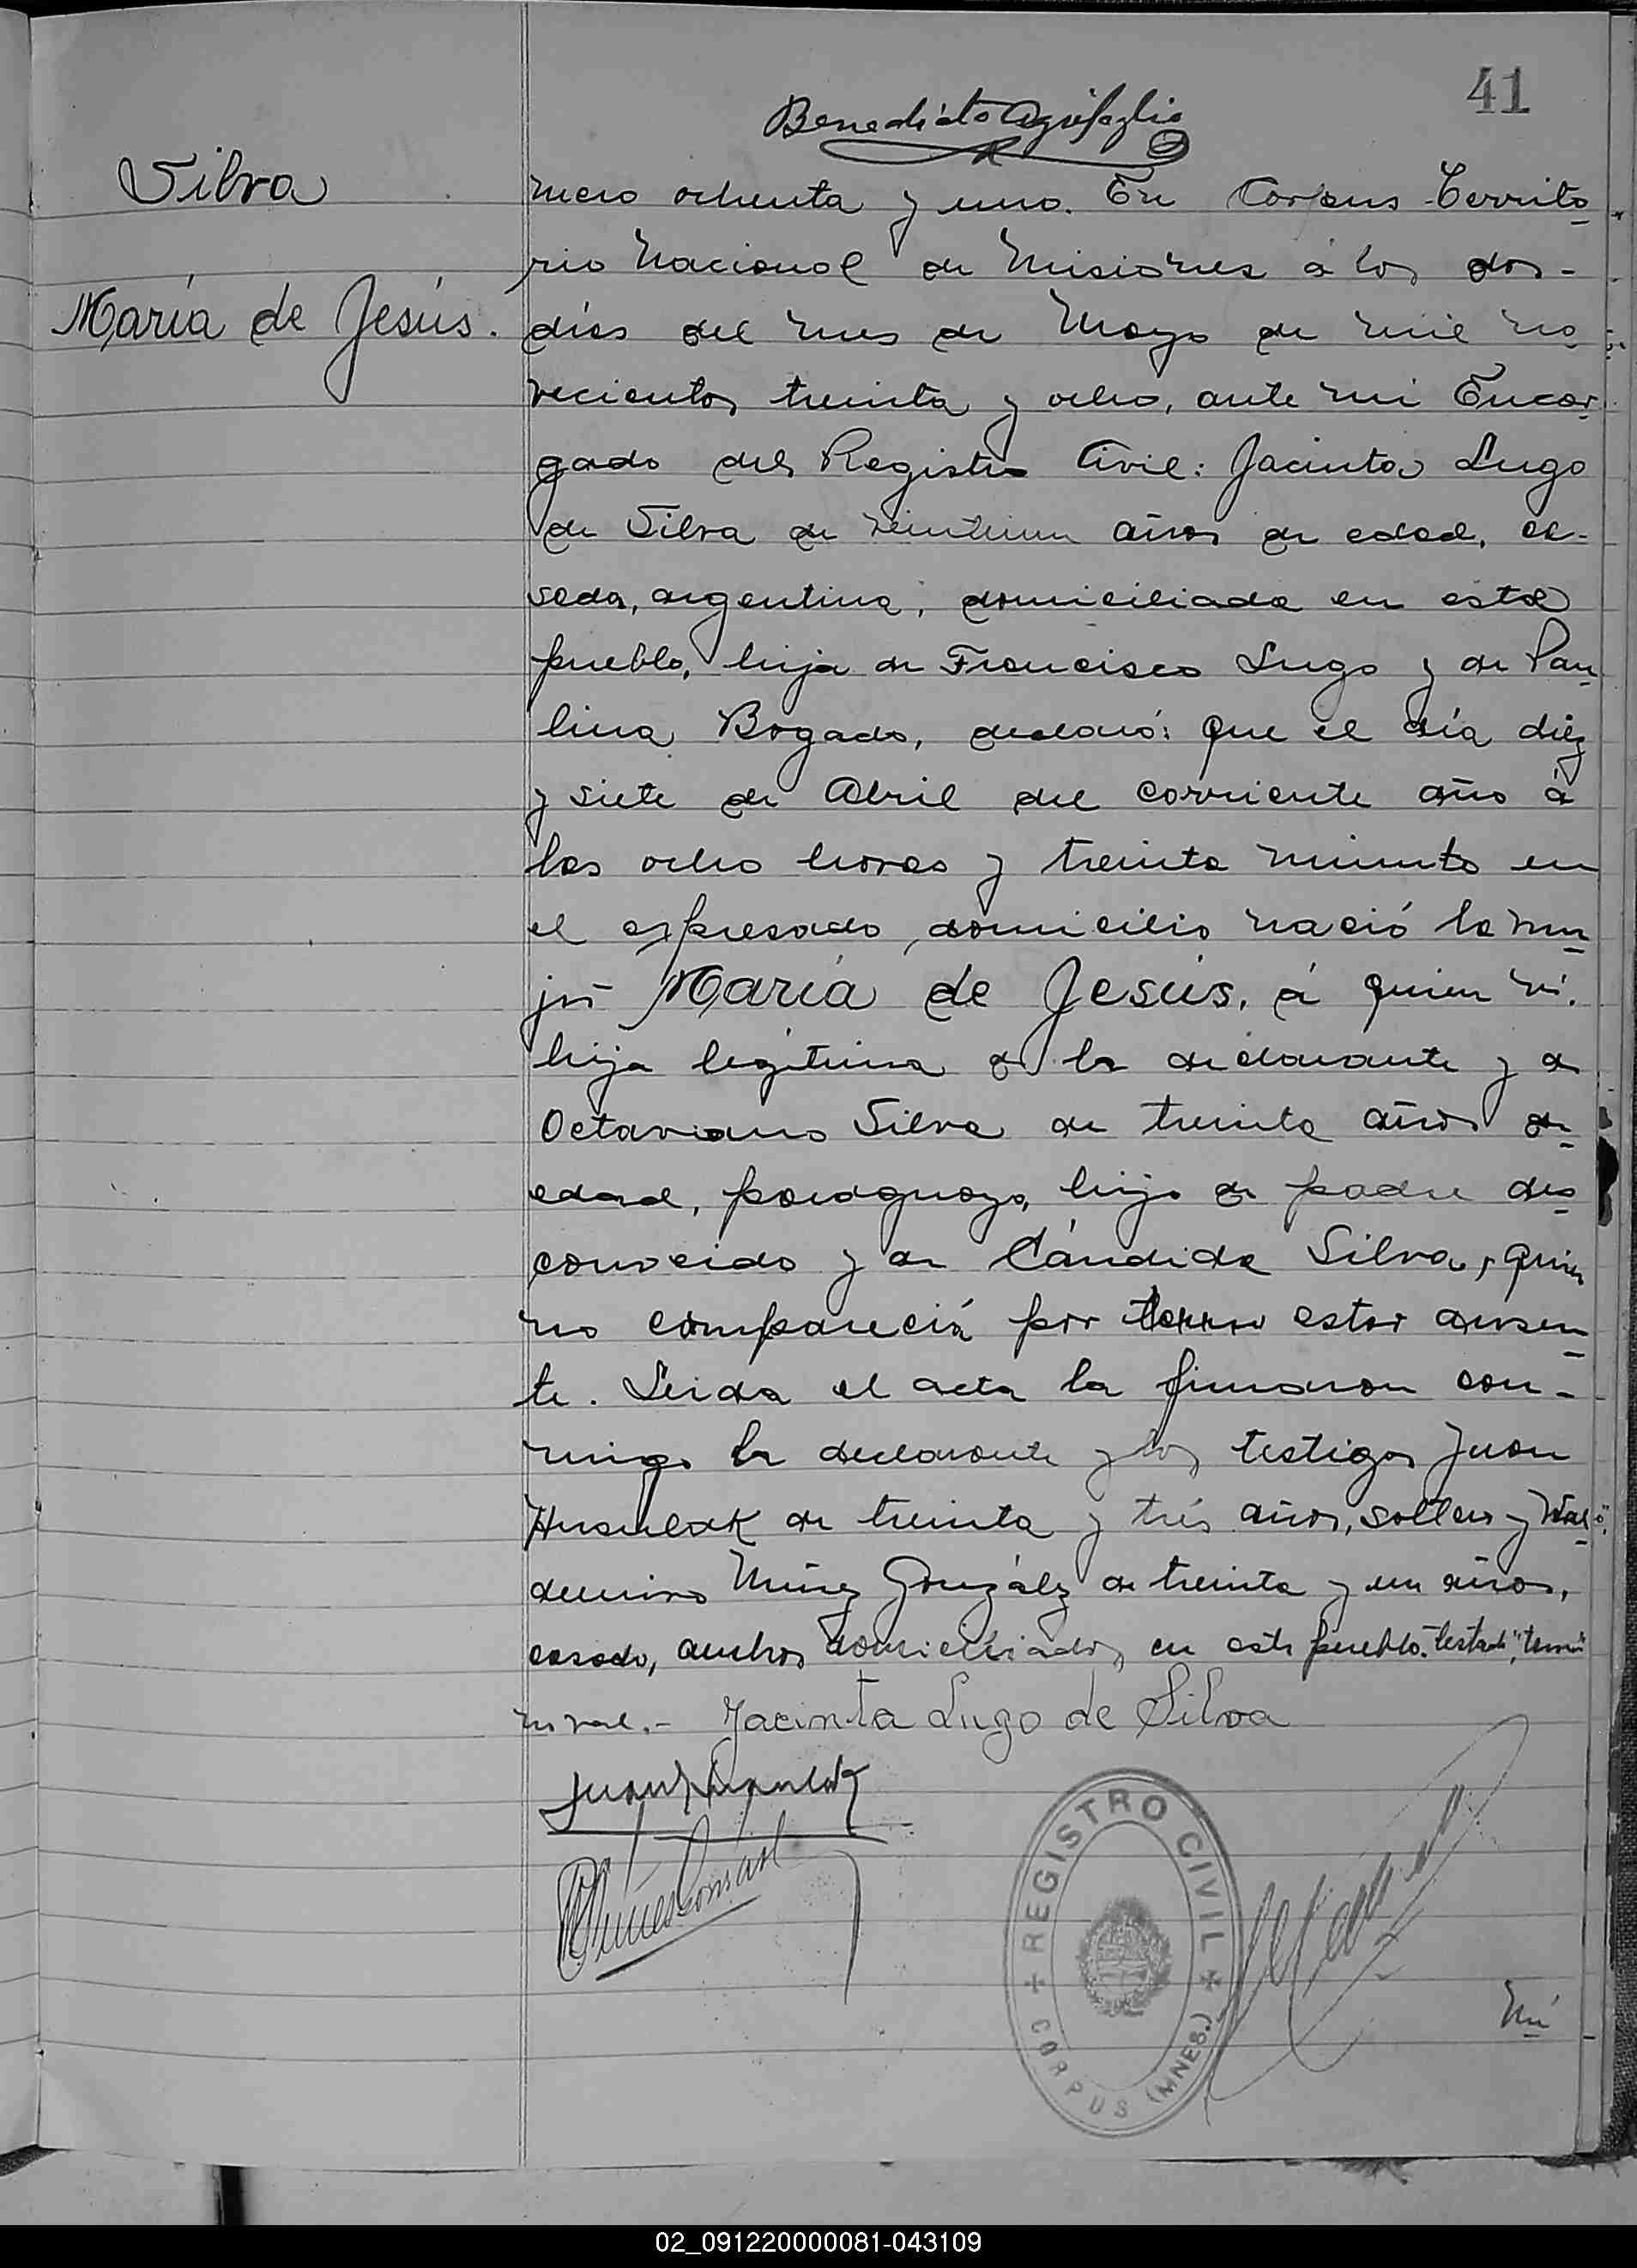 41
Benedicto Agrifoglio
Silva
María de Jesús.
mero ochenta y uno. En Corpus Territo
rio Nacional de Misiones á los dos-
días del mes de Mayo de mil no
vecientos treinta y ocho, ante mi Encar
gado del Registro Civil: Jacinta Lugo
de Silva de años de edad, ca-
sada, argentina, domiciliada en este
pueblo, hija de Francisco Lugo y de Pau
lina Bogado, declaró: Que el día diez
y siete de Abril del corriente año á
las ocho horas y treinta minuto en
el espresado domicilio nació la mu
jer María de Jesús, á quien ví.
hija legítima de la declarante y de
Octaviano Silva de treinta años de
edad, paraguayo, hijo de padre des
conocido y de Cándida Silva, quien
no compareció por estar ausen
te. Leida el acta la firmaron con-
migo la declarante y los testigos Juan
de treinta y trés años, soltero y Wal
demiro Núñez González de treinta y un años,
casado, ambos domiciliados en este pueblo. Testado "
no vale.- Jacinta Lugo de Silva
REGISTRO CIVIL
CORPUS (MNES.)
Nú
02_091220000081-043109